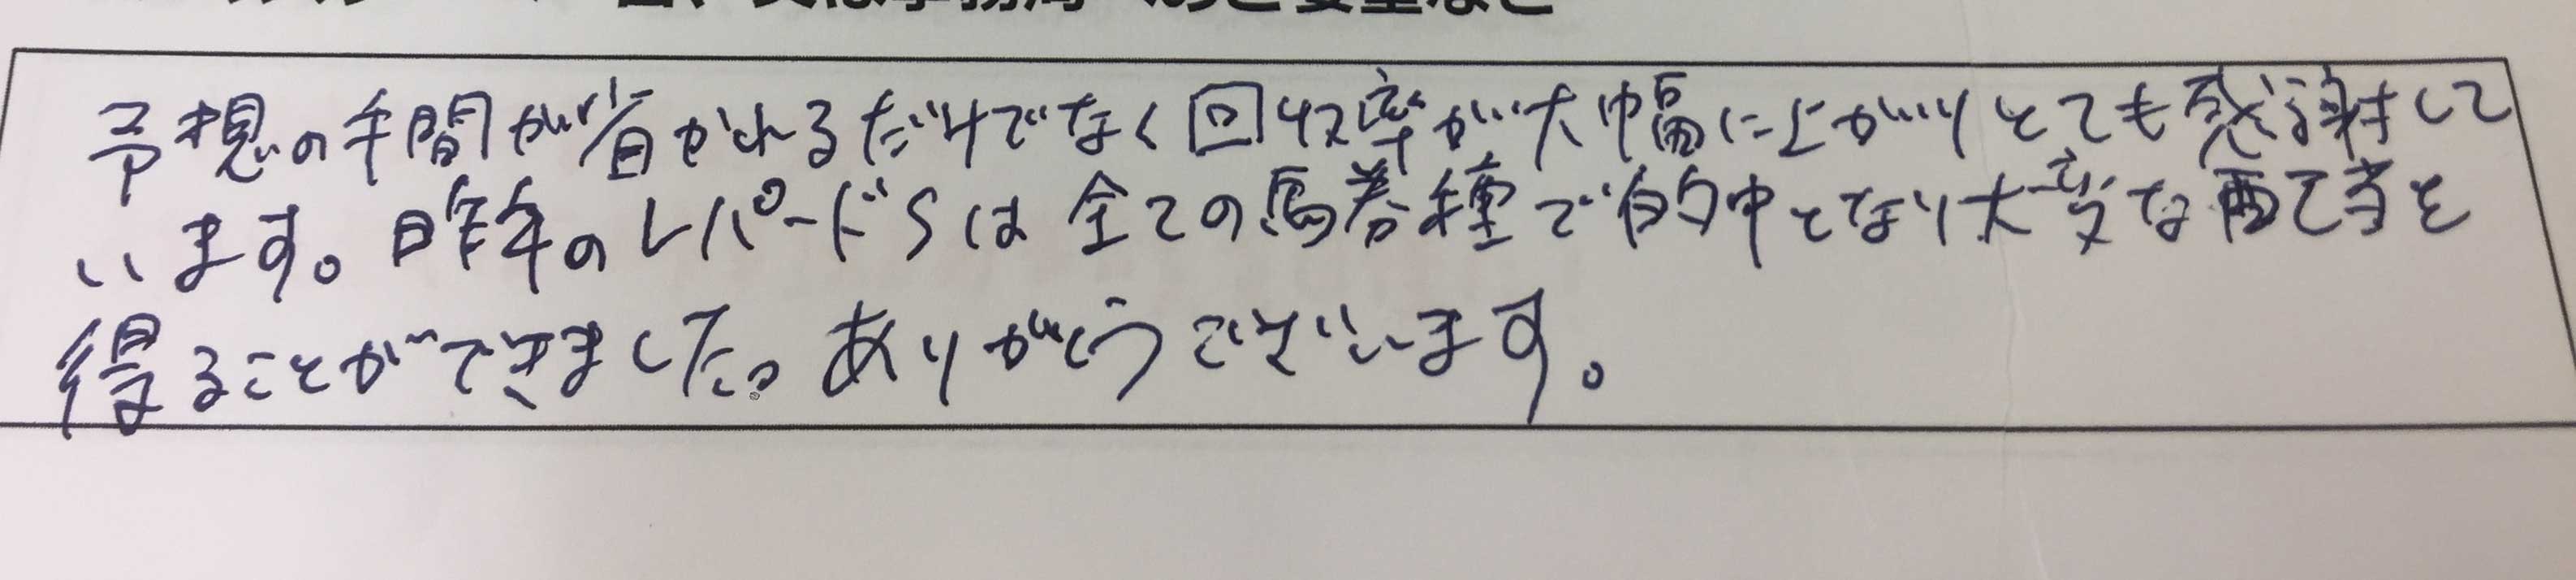 予想の手間が省かれるだけでなく回収率が大幅に上がりとても感謝して
います。昨年のレパードSは全ての馬券種で的中となり大変な配当を
得ることができました。ありがとうございます。